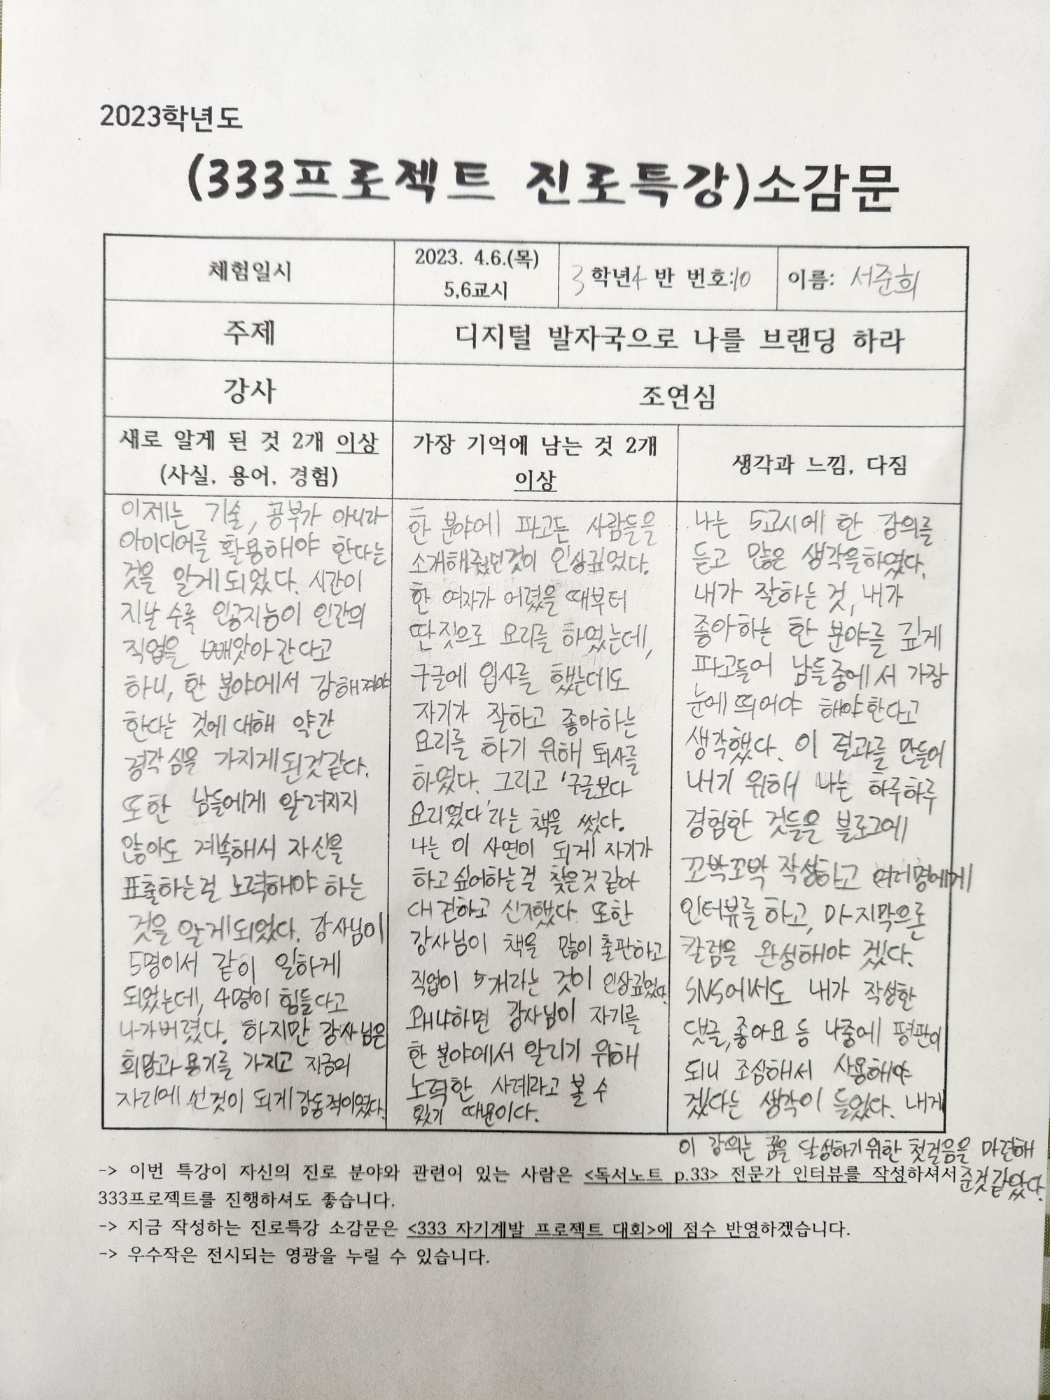 2023학년도
(333프로젝트 진로특강)소감문
체험일시
2023. 4.6.(목)
5,6교시
3학년4 반 번호:10
이름: 서준희
주제
디지털 발자국으로 나를 브랜딩 하라
강사
조연심
새로 알게 된 것 2개 이상
(사실, 용어, 경험)
이제는 기술, 공부가 아니라
아이디어를 활용해야 한다는
것을 알게되었다. 시간이
지날수록 인공지능이 인간의
직업을 빼앗아 간다고
하니, 한 분야에서 강해져야
한다는 것에 대해 약간
경각심을 가지게 된것같다.
또한 남들에게 알려지지
않아도 계속해서 자신을
표출하는걸 노력해야 하는
것을 알게되었다. 강사님이
5명이서 같이 일하게
되었는데, 4명이 힘들다고
나가버렸다. 하지만 강사님은
희망과 용기를 가지고 지금의
자리에 선것이 되게 감동적이였다.
가장 기억에 남는 것 2개
이상
한 분야에 파고든 사람들을
소개해줬던것이 인상깊었다.
한 여자가 어렸을 때부터
딴짓으로 요리를 하였는데,
구글에 입사를 했는데도
자기가 잘하고 좋아하는
요리를 하기 위해 퇴사를
하였다. 그리고 '구글보다
요리였다'라는 책을 썼다.
나는 이 사연이 되게 자기가
하고싶어하는걸 찾은것 같아
대견하고 신기했다. 또한
강사님이 책을 많이 출판하고
직업이 5개라는 것이 인상깊었다.
왜냐하면 강사님이 자기를
한 분야에서 알리기 위해
노력한 사례라고 볼 수
있기 때문이다.
생각과 느낌, 다짐
나는 5교시에 한 강의를
듣고 많은 생각을하였다.
내가 잘하는 것, 내가
좋아하는 한 분야를 깊게
파고들어 남들중에서 가장
눈에 띄어야 해야한다고
생각했다. 이 결과를 만들어
내기 위해 나는 하루하루
경험한 것들을 블로그에
꼬박꼬박 작성하고 여러명에게
인터뷰를 하고, 마지막으론
칼럼을 완성해야 겠다.
SNS에서도 내가 작성한
댓글,좋아요 등 나중에 평판이
되니 조심해서 사용해야
겠다는 생각이 들었다. 내게
이 강의는 꿈을 달성하기위한 첫걸음을 마련해
준것같았다.
-> 이번 특강이 자신의 진로 분야와 관련이 있는 사람은 <독서노트 p.33> 전문가 인터뷰를 작성하셔서
333프로젝트를 진행하셔도 좋습니다.
-> 지금 작성하는 진로특강 소감문은 <333 자기계발 프로젝트 대회>에 점수 반영하겠습니다.
-> 우수작은 전시되는 영광을 누릴 수 있습니다.